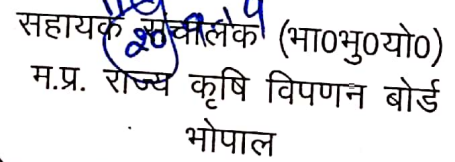 सहायक संचालक (भा०भु०यो०)
म.प्र. राज्य कृषि विपणन बोर्ड
भोपाल